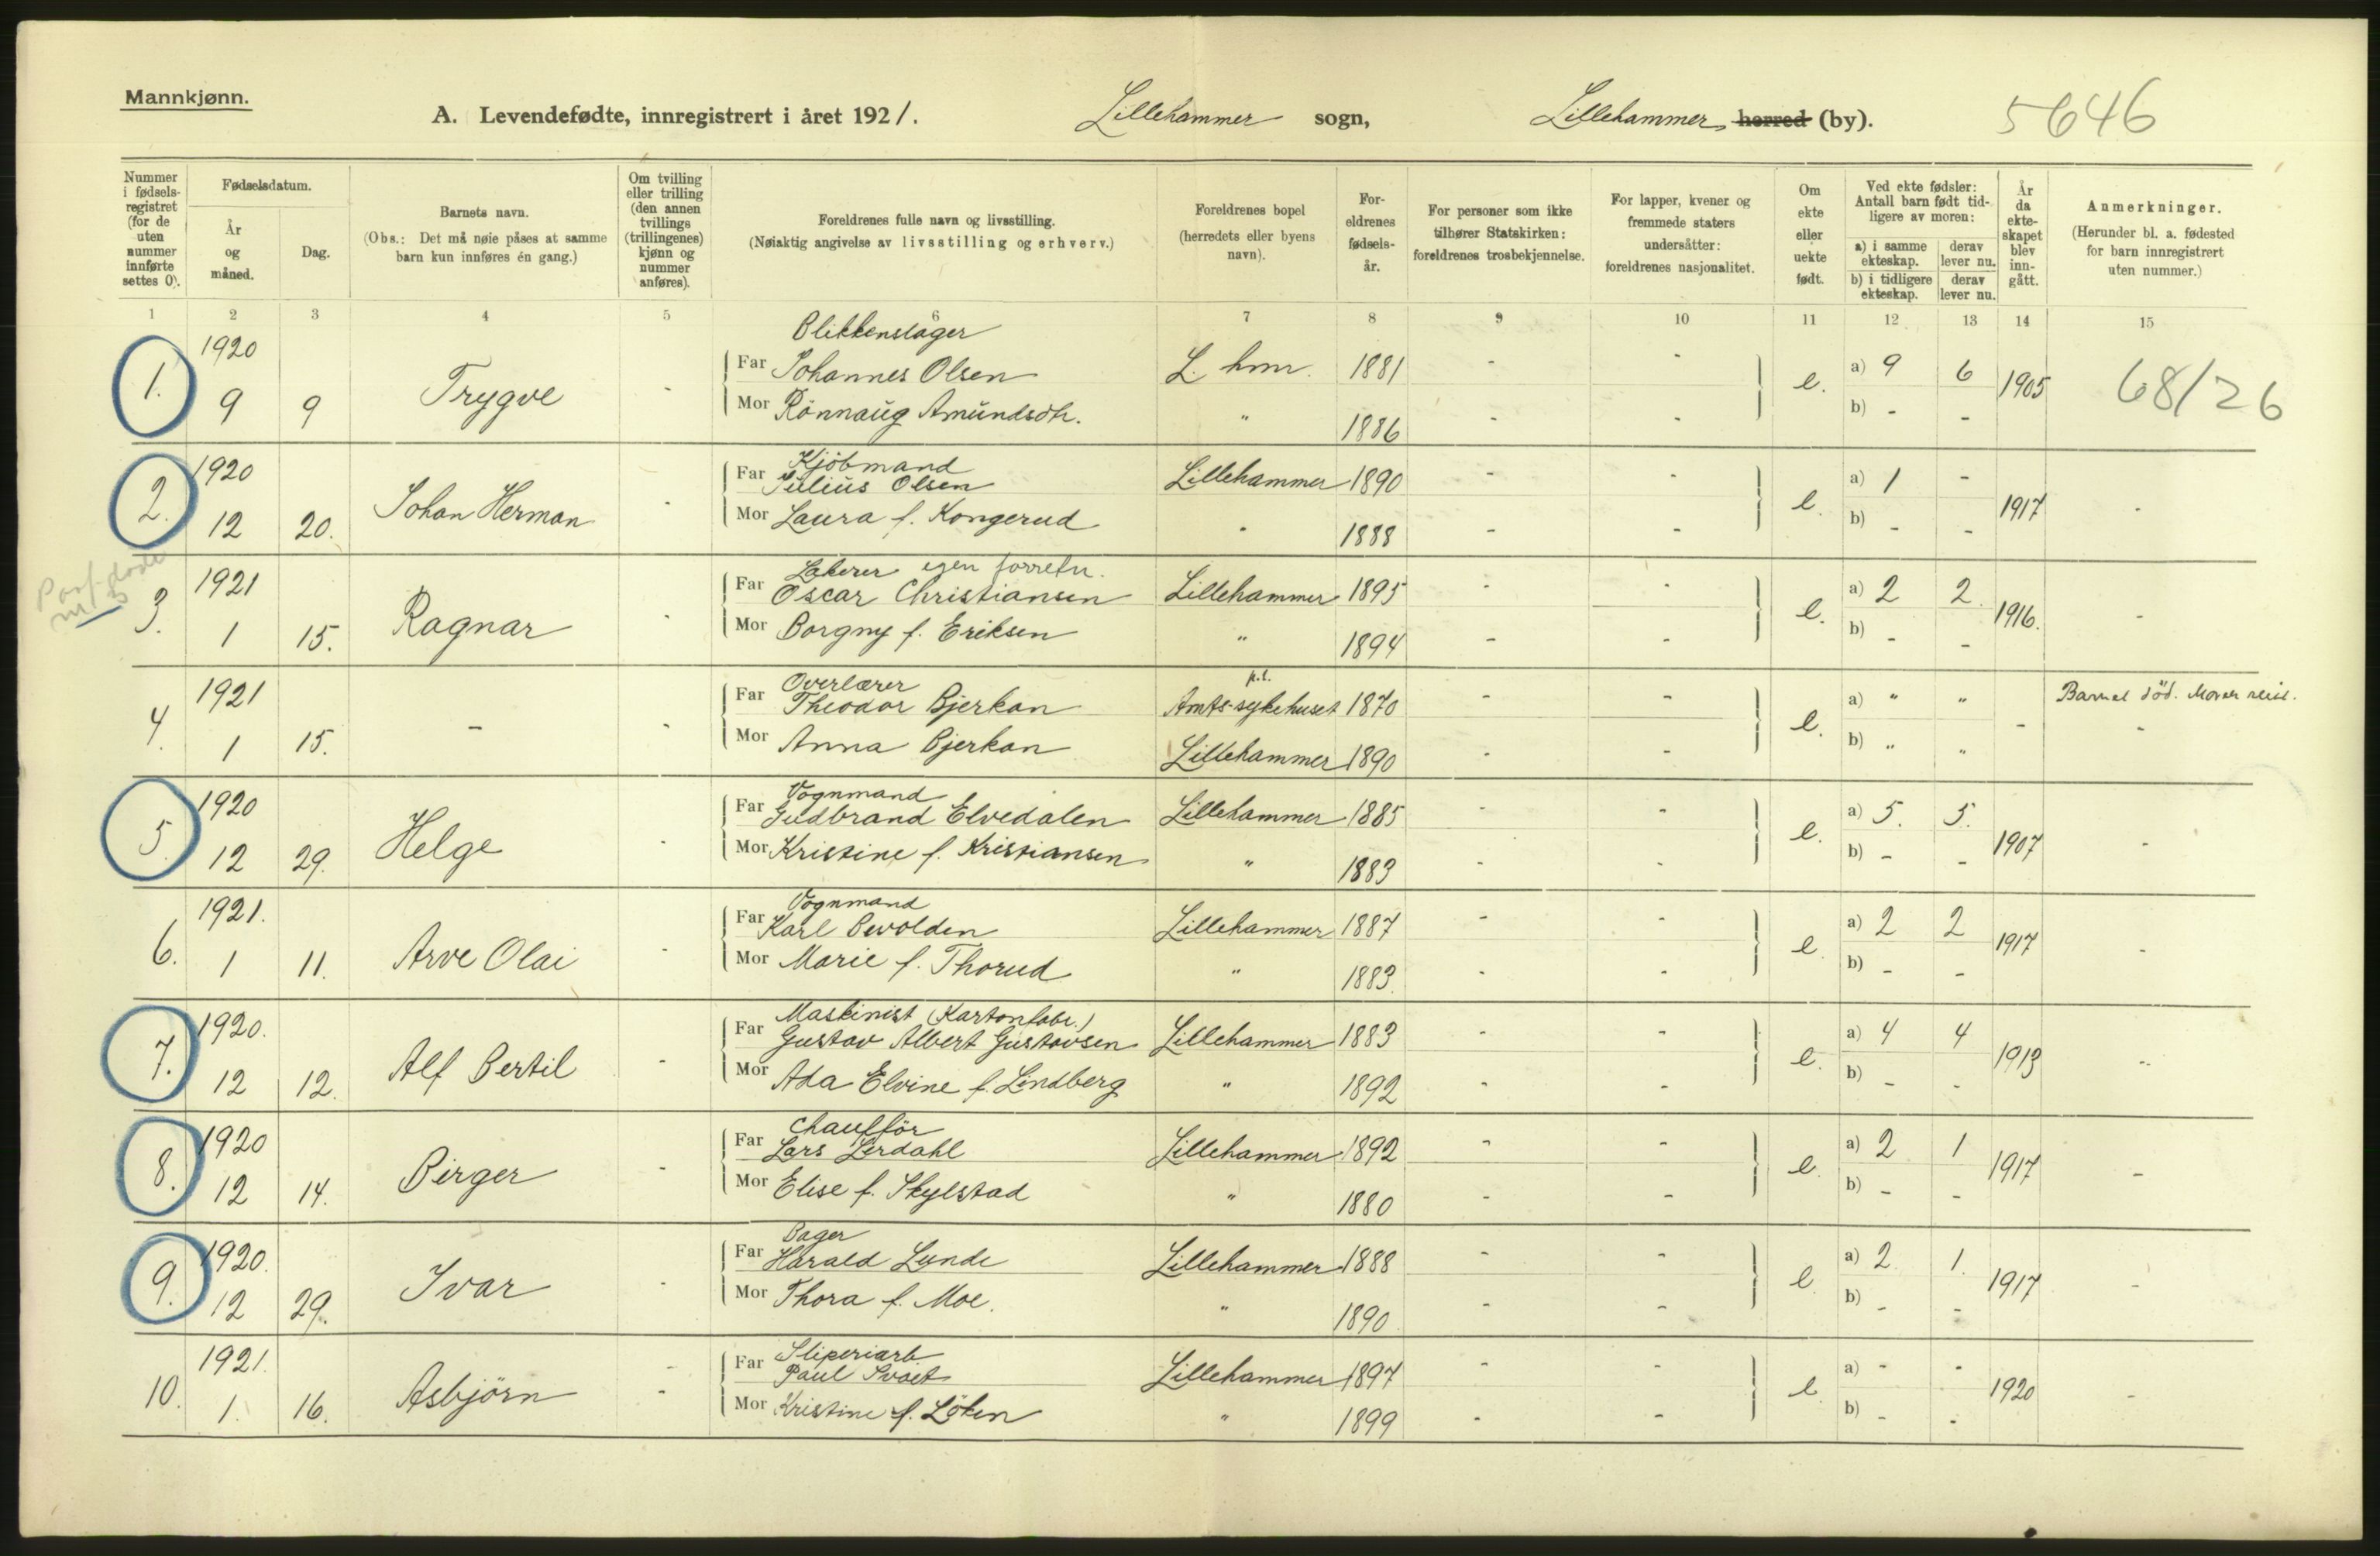 Mannkjønn.
A. Levendefødte, innregistrert i året 1921. Lillehammer sogn, Lillehammer herred (by). 5646
Nummer i fødselsregistret (for de uten nummer innførte settes 0).
Fødselsdatum.
År og måned.
Dag.
Barnets navn.
(Obs.: Det må nøie påses at samme barn kun innføres én gang.)
Om tvilling eller trilling (den annen tvillings (trillingenes) kjønn og nummer anføres).
Foreldrenes fulle navn og livsstilling.
(Nøiaktig angivelse av livsstilling og erhverv.)
Foreldrenes bopel (herredets eller byens navn).
Foreldrenes fødselsår.
For personer som ikke tilhører Statskirken: foreldrenes trosbekjennelse.
For lapper, kvener og fremmede staters undersåtter: foreldrenes nasjonalitet.
Om ekte eller uekte født.
Ved ekte fødsler: Antall barn født tidligere av moren:
a) i samme ekteskap. derav lever nu.
b) i tidligere ekteskap. derav lever nu.
År da ekteskapet blev inngått.
Anmerkninger.
(Herunder bl. a. fødested for barn innregistrert uten nummer.)
1 2 3 4 5 6 7 8 9 10 11 12 13 14 15
1920 Blikkenslager
1. Far Johannes Olsen L. hmr. 1881 - - e. a) 9 6 1905 68/26
9 9 Trygve - Mor Rönnaug Amundsdtr. " 1886 - - b) - -
1920 Kjöbmand
2. Far Julius Olsen Lillehammer 1890 - - e. a) 1 - 1917 -
12 20. Johan Herman - Mor Laura f. Kongerud " 1888 - - b) - -
1921 Lakerer egen forretn.
3. Far Oscar Christiansen Lillehammer 1895 - - e. a) 2 2 1916. -
1 15. Ragnar - Mor Borgny f. Eriksen " 1894 - - b) - -
1921 Overlærer p.t.
4. Far Theodor Bjerkan Amts-sykehuset 1870 - - e. a) " " - Barnet död. Moren reist.
1 15. - - Mor Anna Bjerkan Lillehammer 1890 - - b) " " -
1920 Vognmand
5. Far Gudbrand Elvedalen Lillehammer 1885 - - e. a) 5. 5. 1907 -
12 29. Helge - Mor Kristine f. Kristiansen " 1883 - - b) - -
1921. Vognmand
6. Far Karl Lillehammer 1887 - - e a) 2 2 1917 -
1 11. Arve Olai - Mor Marie f. Thorud " 1883 - - b) - -
1920. Maskinist (Kartonfabr.)
7. Far Gustav Albert Gustavsen Lillehammer 1883 - - e. a) 4 4 1913 -
12 12. Alf Bertil - Mor Ada Elvine f. Lindberg " 1892 - - b) - -
1920 Chaufför
8. Far Lars Lerdahl Lillehammer 1892 - - e. a) 2 1 1917 -
12 14. Birger - Mor Elise f. Skylstad " 1880 - - b) - -
1920. Bager
9. Far Harald Lunde Lillehammer 1888 - - e. a) 2 1. 1917 -
12 29. Ivar - Mor Thora f. Moe. " 1890 - - b) - -
1921. Sliperiarb
10. Far Paul Lillehammer 1897 - - e a) - - 1920 -
1. 16. Asbjörn - Mor Kristine f. Löken " 1899 - - b) - -